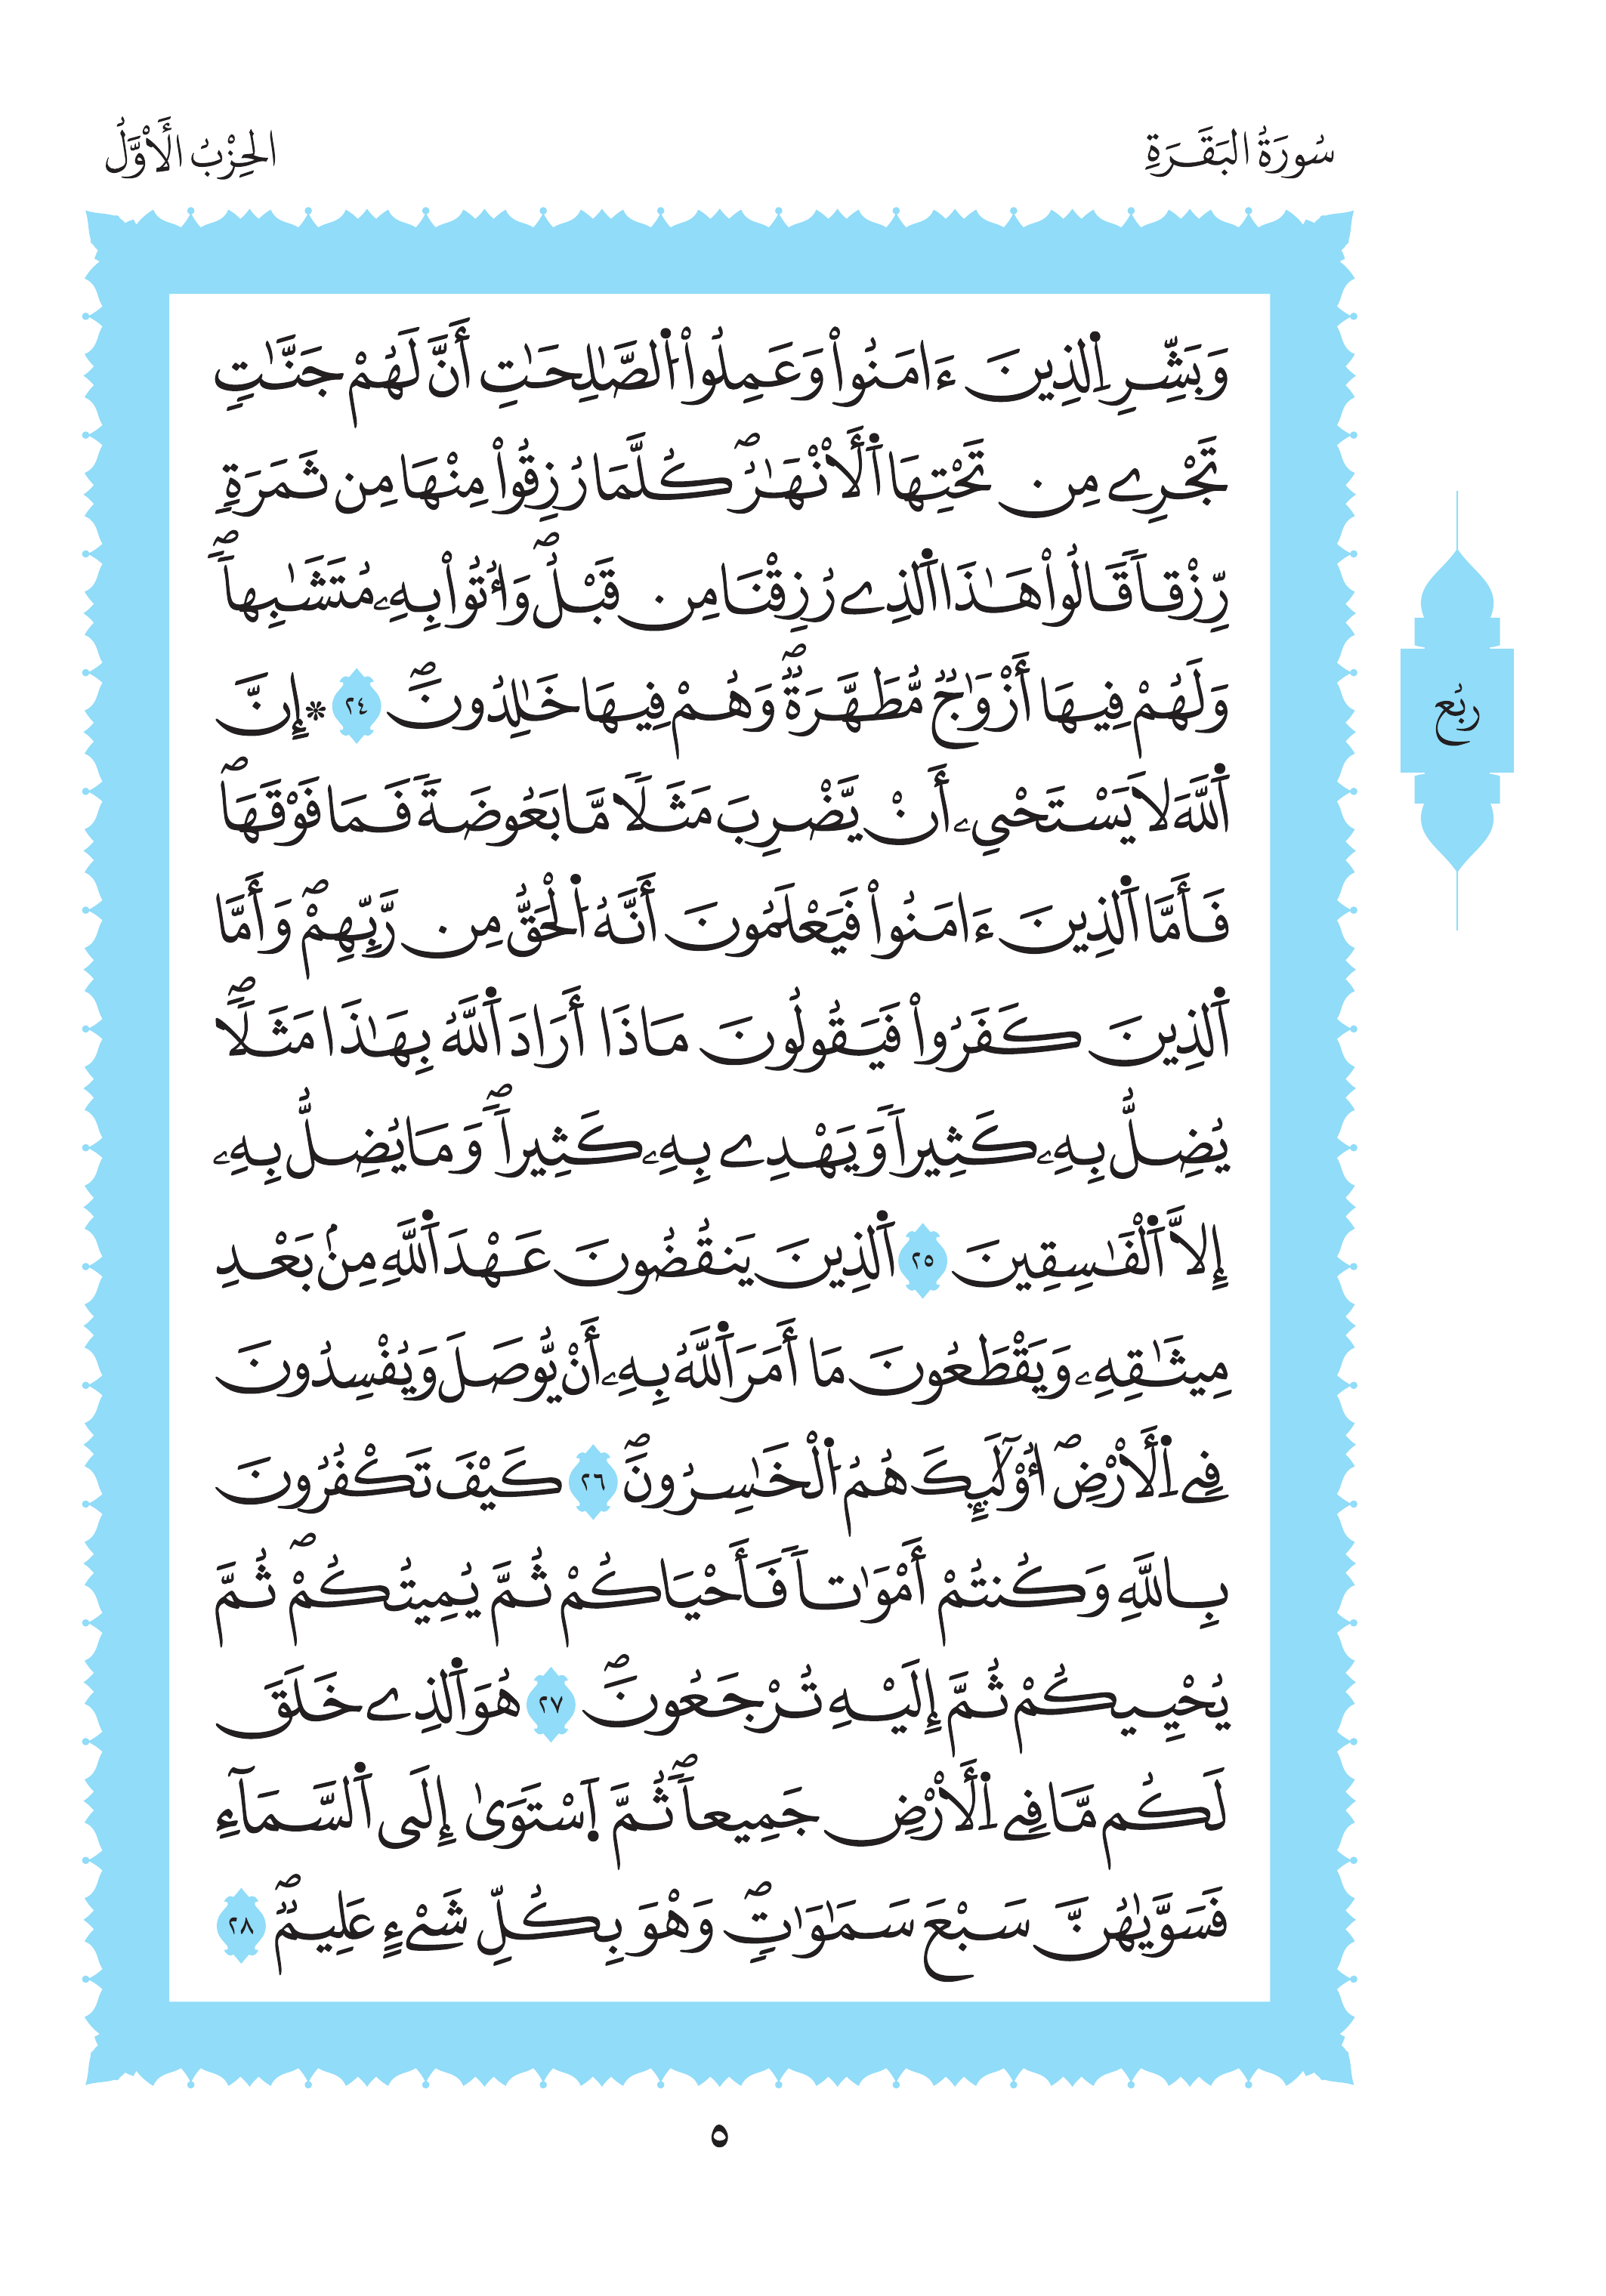 سُورَةُ البَقَرَةِ
الحِزْبُ الَأوَّلُ
وَبَشِّرِ اِ۬لذِينَ ءَامَنُواْ وَعَمِلُواْ اُ۬لصَّٰلِحَٰتِ أَنَّ لَهُمْ جَنَّٰتٖ
تَجْرِے مِن تَحْتِهَا اَ۬لَانْهَٰرُۖ كُلَّمَا رُزِقُواْ مِنْهَا مِن ثَمَرَةٖ
رِّزْقاٗ قَالُواْ هَٰذَا اَ۬لذِے رُزِقْنَا مِن قَبْلُۖ وَأُتُواْ بِهِۦ مُتَشَٰبِهاٗۖ
وَلَهُمْ فِيهَا أَزْوَٰجٞ مُّطَهَّرَةٞۖ وَهُمْ فِيهَا خَٰلِدُونَۖ ٢٤ ۞إِنَّ
اَ۬للَّهَ لَا يَسْتَحْيِۦ أَنْ يَّضْرِبَ مَثَلاٗ مَّا بَعُوضَةٗ فَمَا فَوْقَهَاۖ
فَأَمَّا اَ۬لذِينَ ءَامَنُواْ فَيَعْلَمُونَ أَنَّهُ اُ۬لْحَقُّ مِن رَّبِّهِمْۖ وَأَمَّا
اَ۬لذِينَ كَفَرُواْ فَيَقُولُونَ مَاذَا أَرَادَ اَ۬للَّهُ بِهَٰذَا مَثَلاٗۖ
يُضِلُّ بِهِۦ كَثِيراٗ وَيَهْدِے بِهِۦ كَثِيراٗۖ وَمَا يُضِلُّ بِهِۦ
إِلَّا اَ۬لْفَٰسِقِينَ ٢٥ اَ۬لذِينَ يَنقُضُونَ عَهْدَ اَ۬للَّهِ مِنۢ بَعْدِ
مِيثَٰقِهِۦ وَيَقْطَعُونَ مَا أَمَرَ اَ۬للَّهُ بِهِۦ أَنْ يُّوصَلَ وَيُفْسِدُونَ
فِے اِ۬لَارْضِۖ أُوْلَٰٓئِكَ هُمُ اُ۬لْخَٰسِرُونَۖ ٢٦ كَيْفَ تَكْفُرُونَ
بِاللَّهِ وَكُنتُمْ أَمْوَٰتاٗ فَأَحْيَاكُمْ ثُمَّ يُمِيتُكُمْۖ ثُمَّ
يُحْيِيكُمْ ثُمَّ إِلَيْهِ تُرْجَعُونَۖ ٢٧ هُوَ اَ۬لذِے خَلَقَ
لَكُم مَّا فِے اِ۬لَارْضِ جَمِيعاٗۖ ثُمَّ اَ۪سْتَوَىٰ إِلَى اَ۬لسَّمَآءِ
فَسَوَّيٰهُنَّ سَبْعَ سَمَٰوَٰتٖۖ وَهْوَ بِكُلِّ شَےْءٍ عَلِيمٞۖ ٢٨
ربُع
٥